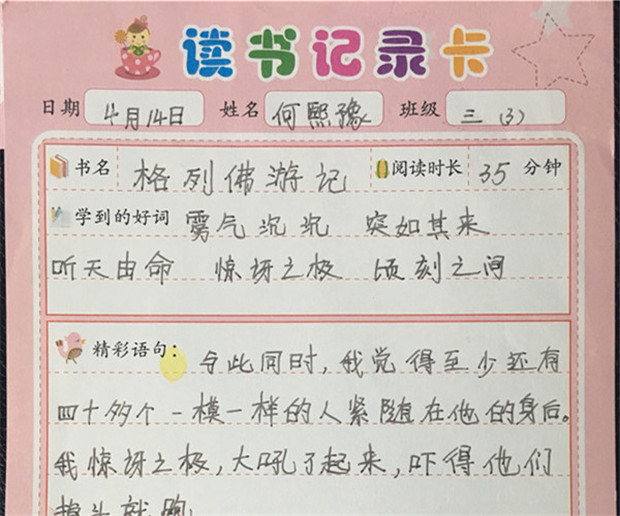 读书记录卡
日期 4月14日 姓名 何熙豫 班级 三（3）
书名 格列佛游记 阅读时长 35 分钟
学到的好词 雾气沉沉 突如其来
听天由命 惊讶之极 顷刻之间
精彩语句： 与此同时，我觉得至少还有
四十多个一模一样的人紧随在他的身后。
我惊讶之极，大吼了起来，吓得他们
掉头就跑